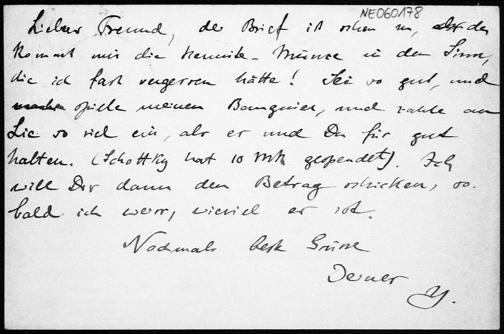 NE060178
Lieber Freund, der Brief ist schon zu, da
kommt mir die Hermite-Münze in den Sinn,
die ich fast vergessen hätte! Sei so gut, und
spiele meinen Banquier, und zahle an
Lie so viel ein, als er und Du für gut
halten. (Schottky hat 10 Mk gespendet). Ich
will Dir dann den Betrag schicken, so-
bald ich weiss, wieviel er ist.
Nochmals beste Grüsse
Deiner